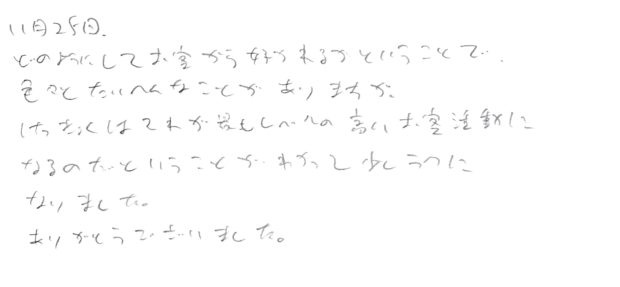 11月25日.
どのようにしてお客から好かれるかということで.
色々とたいへんなことがありますが.
けっきょくはそれが最もレベルの高いお客活動に
なるのだということがわかって少しうつに
なりました。
ありがとうございました。